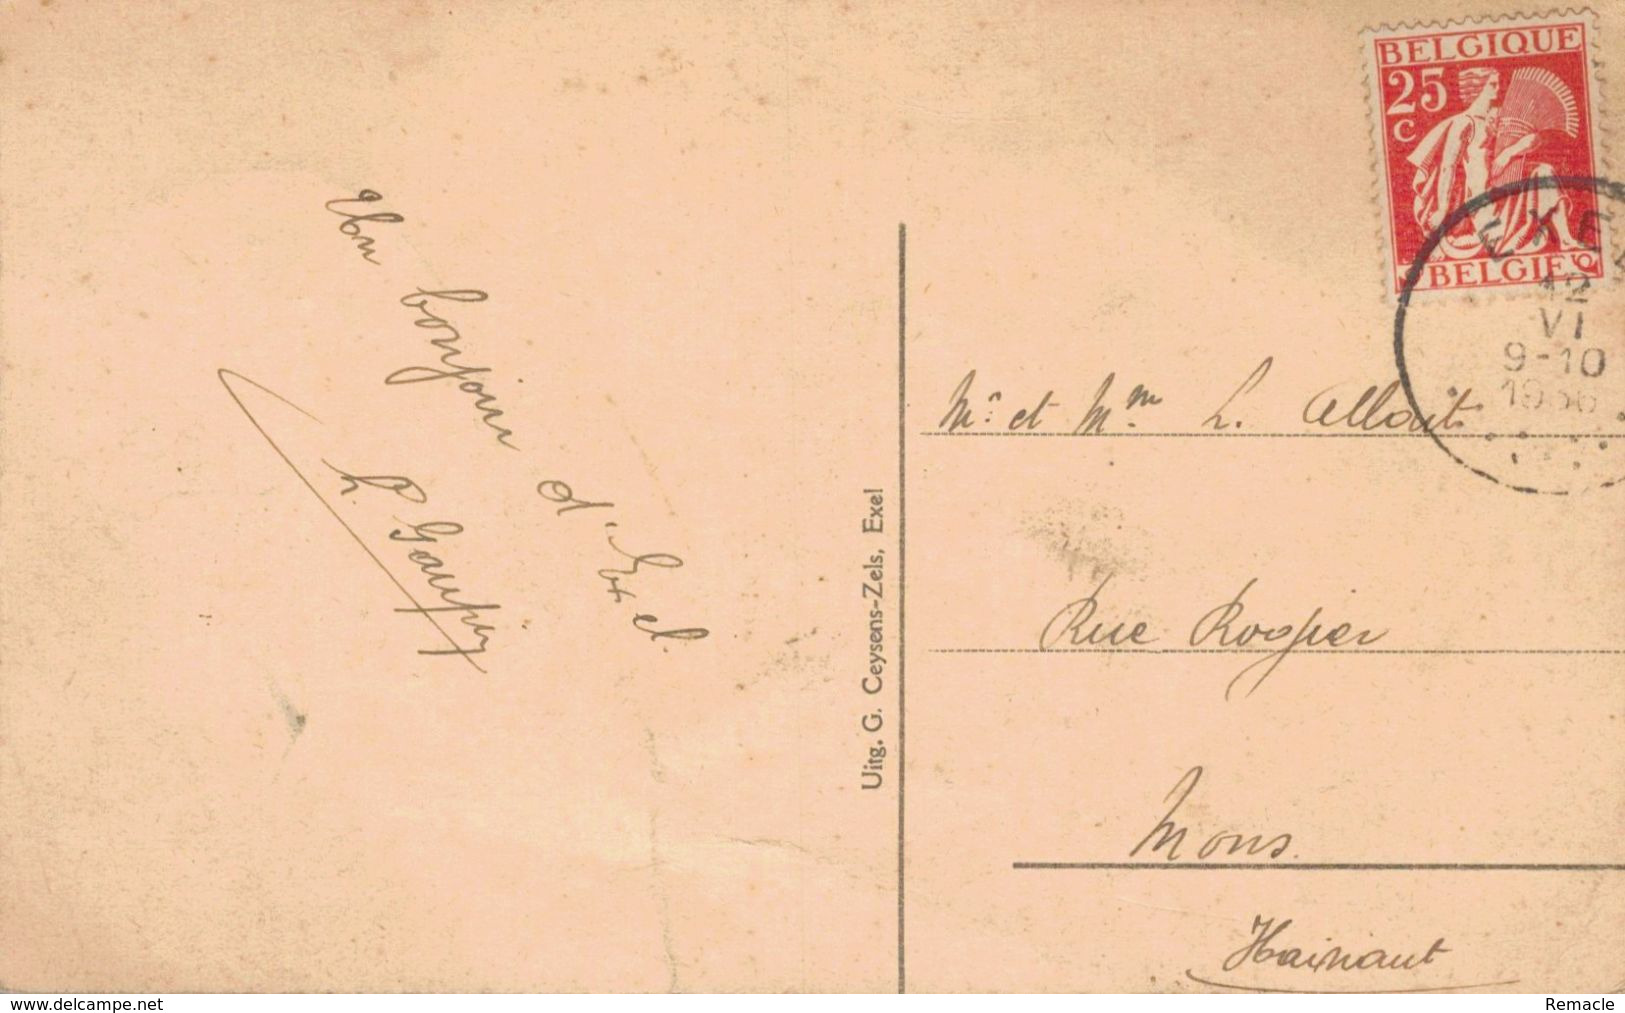 BELGIQUE
25
C
BELGIE
EXEL
12
VI
9-10
1936
Un bonjour
d'Exel.
Uitg. G. Ceysens-Zels, Exel
Mr. et Mme. L. Allout.
Rue Rogier
Mons.
Hainaut
www.delcampe.net
Remacle